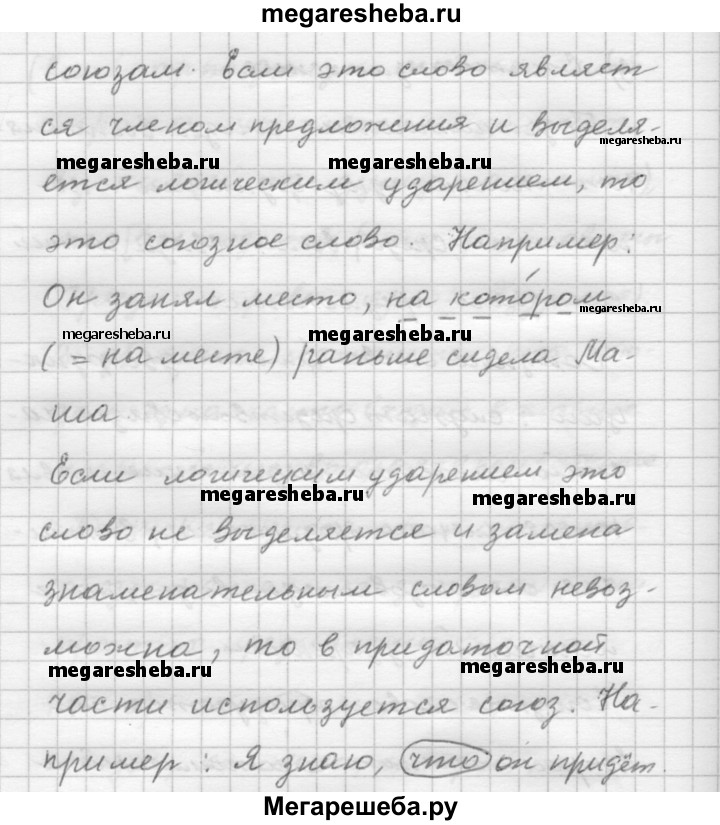 megaresheba.ru
союзам. Если это слово являет
ся членом предложения и выделя-
megaresheba.ru megaresheba.ru megaresheba.ru
ется логическим ударением, то
это союзное слово. Например:
Он занял место, на кото́ром
megaresheba.ru megaresheba.ru megaresheba.ru
( = на месте) раньше сидела Ма-
ша.
Если логическим ударением это
megaresheba.ru megaresheba.ru
слово не выделяется и замена
знаменательным словом невоз-
можна, то в придаточной
megaresheba.ru megaresheba.ru
части используется союз. На-
пример: Я знаю, что он придёт.
Мегарешеба.ру